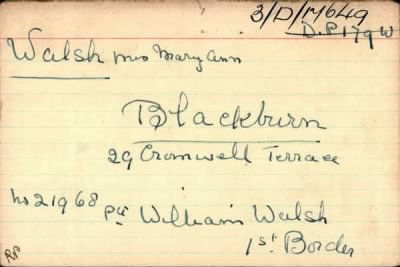 3/D/17649
D.P179W
Walsh Mrs Mary Ann
Blackburn
29 Cromwell Terrace
No 21968 Pte William Walsh
1st Border
RP